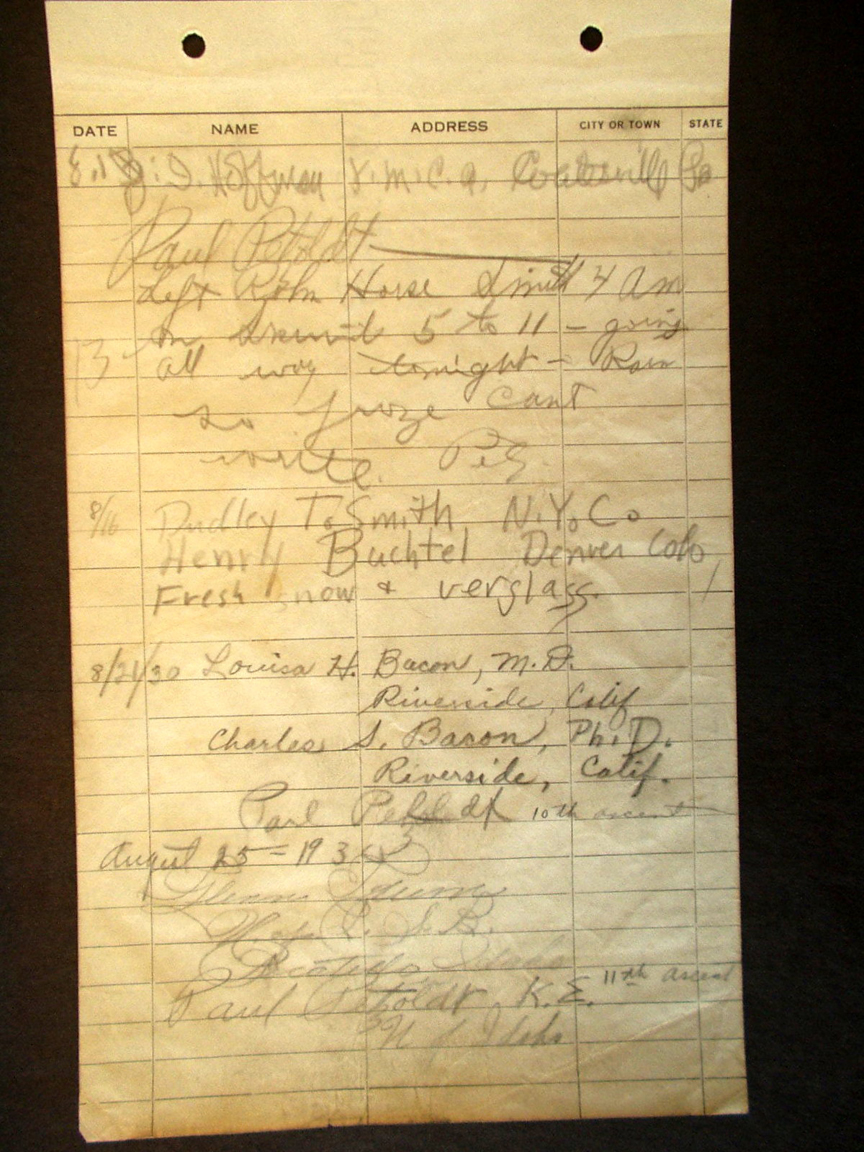 DATE NAME ADDRESS CITY OR TOWN STATE
Hoffman Y.M.C.A. Coatesville Pa
Paul Petzoldt
Left John Horse 4 am
5 to 11 – going
13 all way tonight – Rain
so froze cant
write. Pez.
8/16 Dudley T. Smith N.Y. Co
Henry Buchtel Denver Colo,
Fresh snow & verglass.
8/21/30 Louisa H. Bacon, M.D.
Riverside, Calif
Charles S. Bacon, Ph.D.
Riverside, Calif.
Paul 10th ascent
August 25 = 193
Glenn
Pocatello, Idaho
Paul Petzoldt, K.E. 11th ascent
U of Idaho